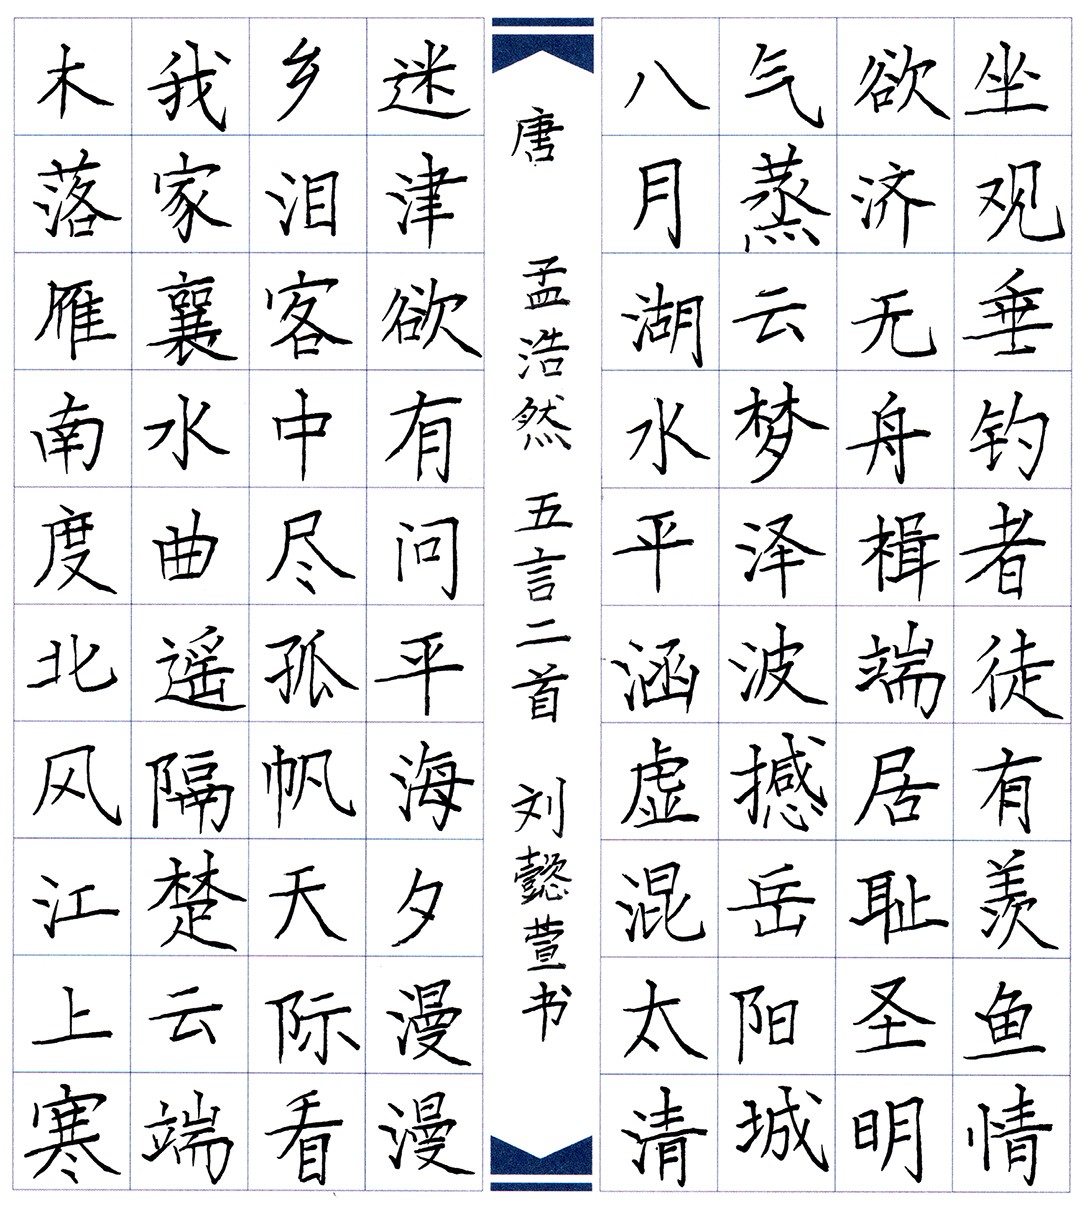 木落雁南度北风江上寒
我家襄水曲遥隔楚云端
乡泪客中尽孤帆天际看
迷津欲有问平海夕漫漫
唐 孟浩然 五言二首 刘懿萱书
八月湖水平涵虚混太清
气蒸云梦泽波撼岳阳城
欲济无舟楫端居耻圣明
坐观垂钓者徒有羡鱼情